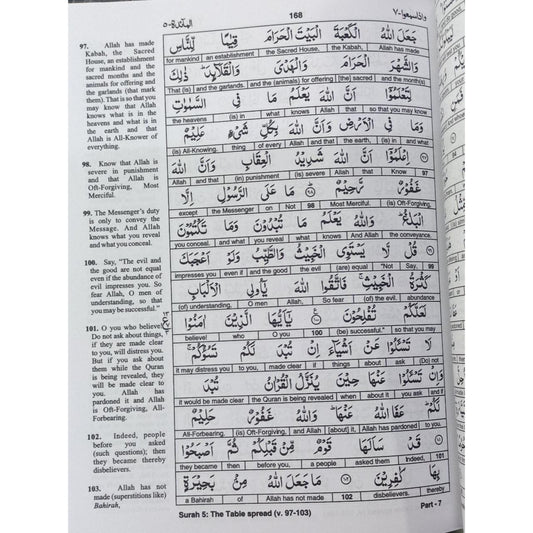 المآئدة-٥
168
واذا سمعوا-٧
97. Allah has made
Kabah, the Sacred
House, an establishment
for mankind and the
sacred months and the
animals for offering and
the garlands (that mark
them). That is so that you
may know that Allah
knows what is in the
heavens and what is in
the earth and that
Allah is All-Knower of
everything.
98. Know that Allah is
severe in punishment
and that Allah is
Oft-Forgiving, Most
Merciful.
99. The Messenger's duty
is only to convey the
Message. And Allah
knows what you reveal
and what you conceal.
100. Say, "The evil and
the good are not equal
even if the abundance of
evil impresses you. So
fear Allah, O men of
understanding, so that
you may be successful."
101. O you who believe!
Do not ask about things,
if they are made clear
to you, will distress you.
But if you ask about
them while the Quran
is being revealed, they
will be made clear to
you. Allah has
pardoned it and Allah
is Oft-Forgiving, All-
Forbearing.
102. Indeed, people
before you asked
(such questions); then
they became thereby
disbelievers.
103. Allah has not
made (superstitions like)
Bahirah,
جَعَلَ اللّٰهُ الْكَعْبَةَ الْبَيْتَ الْحَرَامَ قِيٰمًا لِّلنَّاسِ
for mankind an establishment the Sacred House, the Kabah, Allah has made
وَالشَّهْرَ الْحَرَامَ وَالْهَدْىَ وَالْقَلَآئِدَ ذٰلِكَ
That (is) and the garlands. and the animals for offering [the] sacred and the month(s)
لِتَعْلَمُوْٓا اَنَّ اللّٰهَ يَعْلَمُ مَا فِى السَّمٰوٰتِ
the heavens (is) in what knows Allah that so that you may know
وَمَا فِى الْاَرْضِ وَاَنَّ اللّٰهَ بِكُلِّ شَىْءٍ عَلِيْمٌ
(is) All-Knowing. thing of every Allah and that the earth, (is) in and what
اِعْلَمُوْٓا اَنَّ اللّٰهَ شَدِيْدُ الْعِقَابِ وَاَنَّ اللّٰهَ
Allah and that (in) punishment (is) severe Allah that Know 97
غَفُوْرٌ رَّحِيْمٌ ﴿٩٨﴾ مَا عَلَى الرَّسُوْلِ اِلَّا
except the Messenger on Not 98 Most Merciful. (is) Oft-Forgiving,
الْبَلٰغُ وَاللّٰهُ يَعْلَمُ مَا تُبْدُوْنَ وَمَا تَكْتُمُوْنَ
you conceal. and what you reveal what knows And Allah the conveyance.
قُلْ لَّا يَسْتَوِى الْخَبِيْثُ وَالطَّيِّبُ وَلَوْ اَعْجَبَكَ
impresses you even if and the good the evil (are) equal "Not Say, 99
كَثْرَةُ الْخَبِيْثِ فَاتَّقُوا اللّٰهَ يٰٓاُولِى الْاَلْبَابِ
(of) understanding, O men Allah, So fear (of) the evil. abundance
لَعَلَّكُمْ تُفْلِحُوْنَ يٰٓاَيُّهَا الَّذِيْنَ اٰمَنُوْا
believe! who O you 100 (be) successful." so that you may
لَا تَسْئَلُوْا عَنْ اَشْيَآءَ اِنْ تُبْدَ لَكُمْ تَسُؤْكُمْ
it may distress you to you, made clear if things about ask (Do) not
وَاِنْ تَسْئَلُوْا عَنْهَا حِيْنَ يُنَزَّلُ الْقُرْاٰنُ تُبْدَ
it would be made clear the Quran is being revealed when about it you ask and if
لَكُمْ عَفَا اللّٰهُ عَنْهَا وَاللّٰهُ غَفُوْرٌ حَلِيْمٌ
All-Forbearing. (is) Oft-Forgiving, and Allah [about] it, Allah has pardoned to you.
قَدْ سَاَلَهَا قَوْمٌ مِّنْ قَبْلِكُمْ ثُمَّ اَصْبَحُوْا
they became then before you, a people asked them Indeed, 101
بِهَا كٰفِرِيْنَ مَا جَعَلَ اللّٰهُ مِنْ بَحِيْرَةٍ
a Bahirah of Allah has not made 102 disbelievers. thereby
Surah 5: The Table spread (v. 97-103)
Part - 7